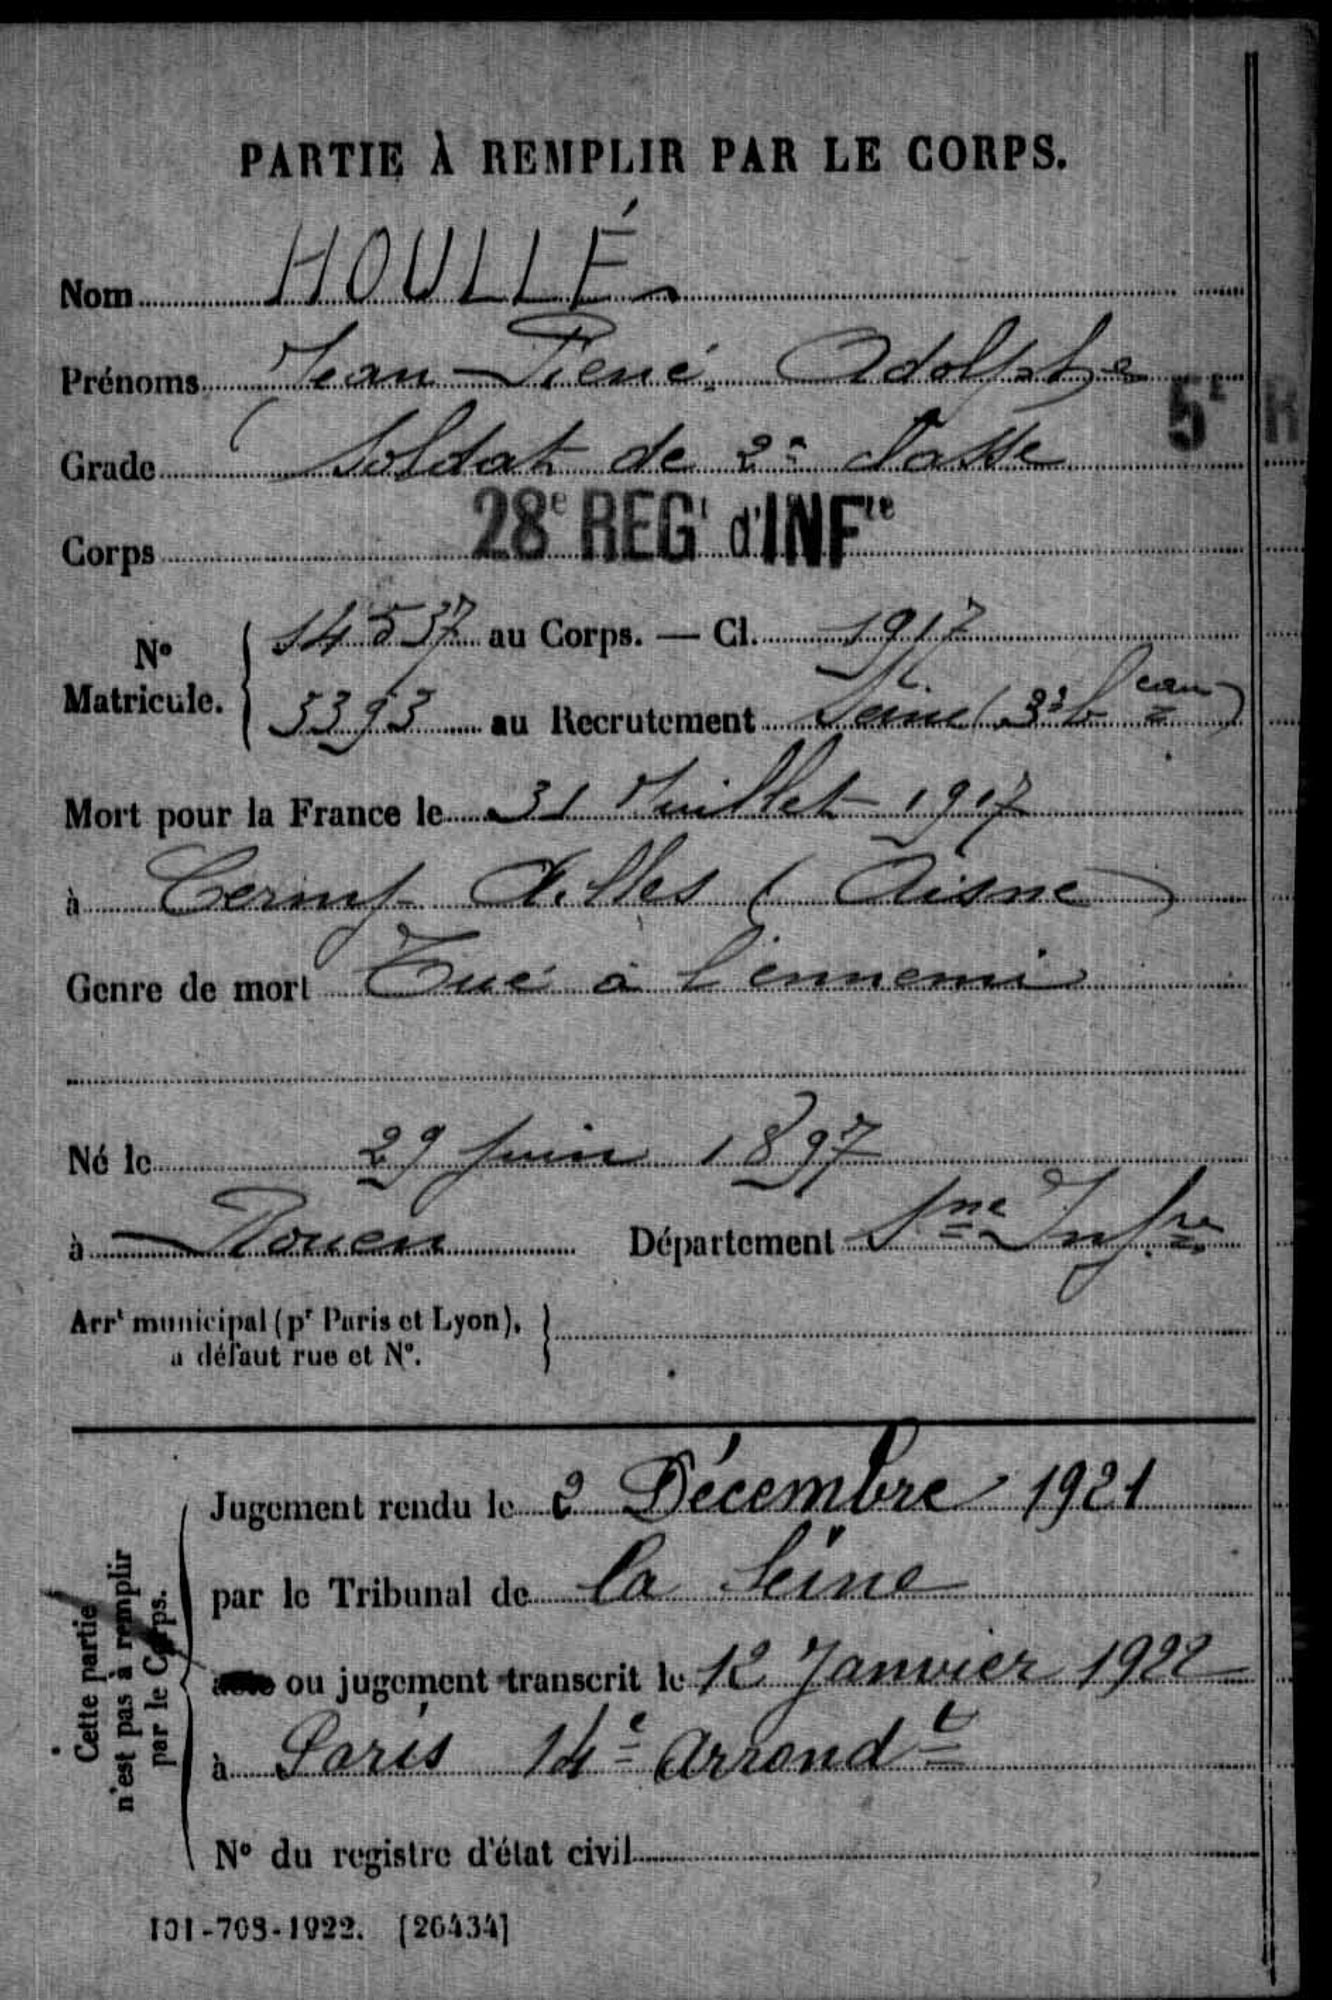 PARTIE À REMPLIR PAR LE CORPS.
Nom HOULLÉ
Prénoms Jean René Adolphe
Grade Soldat de 2e classe
5e R
Corps 28e REGt d'INFie
No Matricule. 14537 au Corps. — Cl. 1917
5393 au Recrutement Seine (3e beau)
Mort pour la France le 31 Juillet 1917
à Cerny (Aisne)
Genre de mort Tué à l'ennemi
Né le 29 juin 1897
à Rouen Département Sne Infre
Arrt municipal (pr Paris et Lyon),
à défaut rue et No.
Cette partie n'est pas à remplir par le Corps.
Jugement rendu le 2 Décembre 1921
par le Tribunal de la Seine
acte ou jugement transcrit le 12 Janvier 1922
à Paris 14e Arrondt
No du registre d'état civil
101-708-1922. [26434]